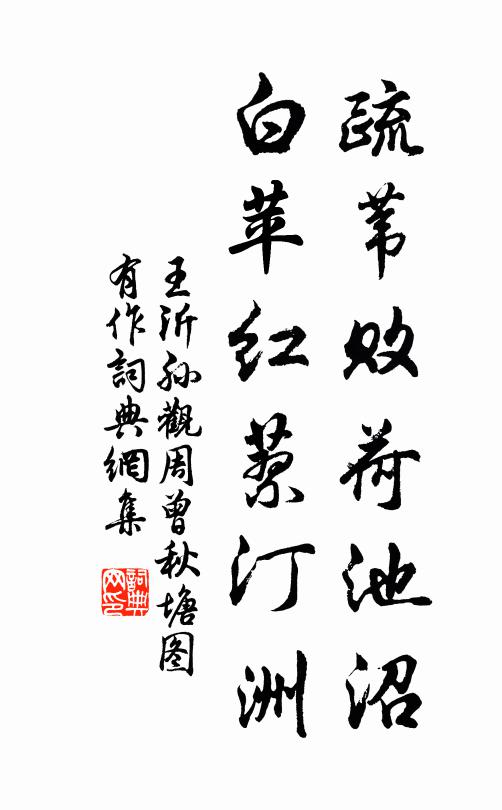 疏苇败荷池沼
白苹红蓼汀洲
王沂孙觀周曾秋塘图
有作詞典網集
詞典网印